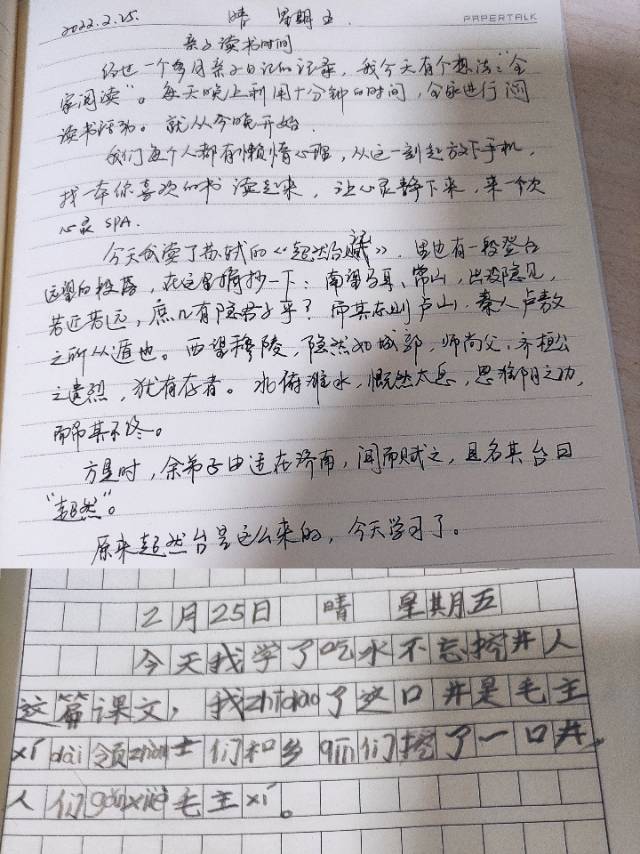 2022.2.25. 晴 星期五.
PAPERTALK
亲子读书时间
经过一个多月亲子日记的记录，我今天有个想法："全
家阅读"。每天晚上利用十分钟的时间，全家进行阅
读书活动。就从今晚开始.
我们每个人都有懒惰心理，从这一刻起放下手机，
找一本你喜欢的书读起来，让心灵静下来，来一个次
心灵SPA.
今天我读了苏轼的《超然台记》，里也有一段登台
远望的段落，在这里摘抄一下：南望马耳、常山，出没隐见，
若近若远，庶几有隐君子乎？而其东则卢山，秦人卢敖
之所从遁也。西望穆陵，隐然如城郭，师尚父、齐桓公
之遗烈，犹有存者。北俯潍水，慨然太息，思淮阴之功，
而吊其不终。
方是时，余弟子由适在济南，闻而赋之，且名其台曰
"超然"。
原来超然台是这么来的，今天学习了。
2月25日 晴 星其月五
今天我学了吃水不忘挖井人
这篇课文，我zhīdào了这口井是毛主
xí dài领zhàn士们和乡qīn们挖了一口井，
人们gǎnxiè毛主xí。